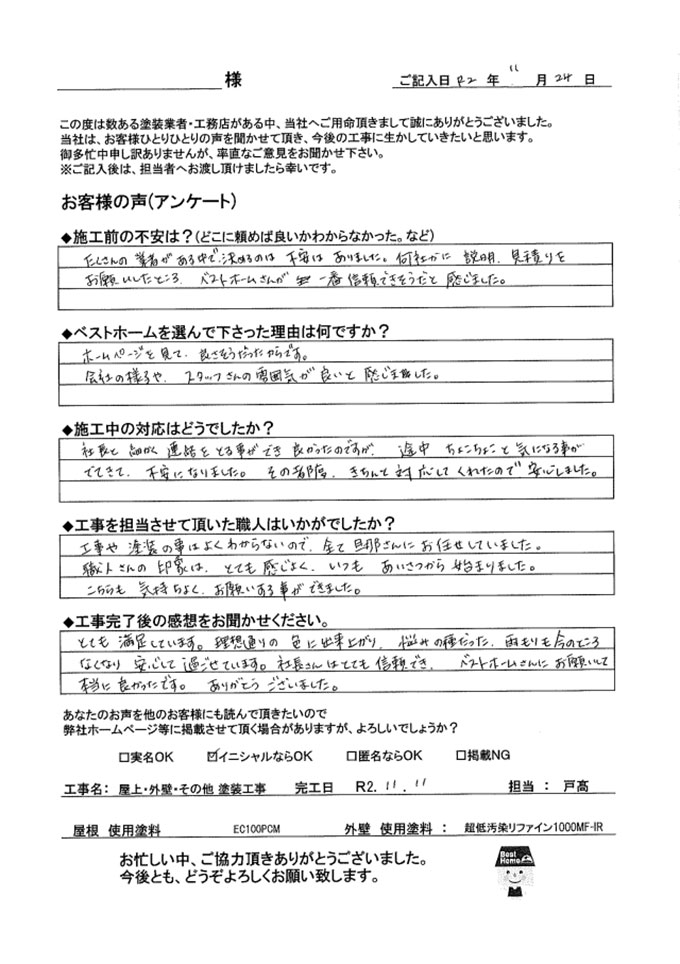 様
ご記入日 R2 年 11 月 24 日
この度は数ある塗装業者・工務店がある中、当社へご用命頂きまして誠にありがとうございました。
当社は、お客様ひとりひとりの声を聞かせて頂き、今後の工事に生かしていきたいと思います。
御多忙中申し訳ありませんが、率直なご意見をお聞かせ下さい。
※ご記入後は、担当者へお渡し頂けましたら幸いです。
お客様の声(アンケート)
◆施工前の不安は？(どこに頼めば良いかわからなかった。など)
たくさんの業者がある中で決めるのは 不安は ありました。何社かに 説明、見積りを
お願いしたところ、ベストホームさんが 一番信頼できそうだと 感じました。
◆ベストホームを選んで下さった理由は何ですか？
ホームページを見て、良さそうだったからです。
会社の様子や、スタッフさんの雰囲気が良いと 感じました。
◆施工中の対応はどうでしたか？
社長と 細かく 連絡を とる事ができ 良かったのですが、 途中 ちょこちょこと 気になる事が
でてきて、不安になりました。 その都度、きちんと対応してくれたので 安心しました。
◆工事を担当させて頂いた職人はいかがでしたか？
工事や 塗装の事はよくわからないので、全て 旦那さんにお任せしていました。
職人さんの 印象は、とても 感じよく、いつも あいさつから 始まりました。
こちらも 気持ちよく、お願いする事ができました。
◆工事完了後の感想をお聞かせください。
とても 満足しています。理想通りの 色に出来上がり、 悩みの種だった、雨もりも今のところ
なくなり 安心して 過ごせています。社長さんはとても 信頼でき、 ベストホームさんにお願いして
本当に 良かったです。 ありがとう ございました。
あなたのお声を他のお客様にも読んで頂きたいので
弊社ホームページ等に掲載させて頂く場合がありますが、よろしいでしょうか？
□実名OK ☑イニシャルならOK □匿名ならOK □掲載NG
工事名： 屋上・外壁・その他 塗装工事 完工日 R2. 11 . 11 担当 ： 戸髙
屋根 使用塗料 EC100PCM 外壁 使用塗料 ： 超低汚染リファイン1000MF-IR
お忙しい中、ご協力頂きありがとうございました。
今後とも、どうぞよろしくお願い致します。
Best
Home